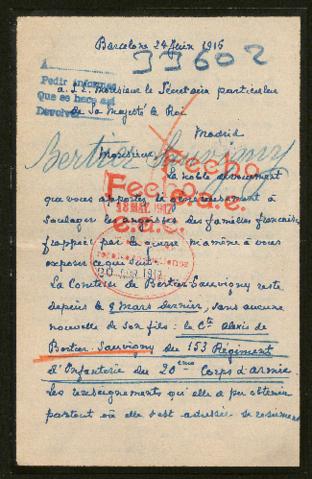 Barcelone 24 Juin 1916
33602
A
Pedir informes
Que se hace así
Devolver
à S.E. Monsieur le Secrétaire particulier
de Sa Majesté le Roi
Madrid
Bertier Sauvigny
Monsieur
Le noble dévouement
Fecho
Fecho
que vous apportez si généreusement à
18 MAI. 1917
soulager les angoisses des familles françaises
frappées par la guerre m'amène à vous
exposer ce qui suit:
1917
La Comtesse de Bertier Sauvigny reste
depuis le 9 Mars dernier, sans aucune
nouvelle de son fils: le Cte Alexis de
Bertier-Sauvigny du 153 Régiment
d'Infanterie du 20ème Corps d'armée
Les renseignements qu'elle a pu obtenir
partout où elle s'est adressée se résument